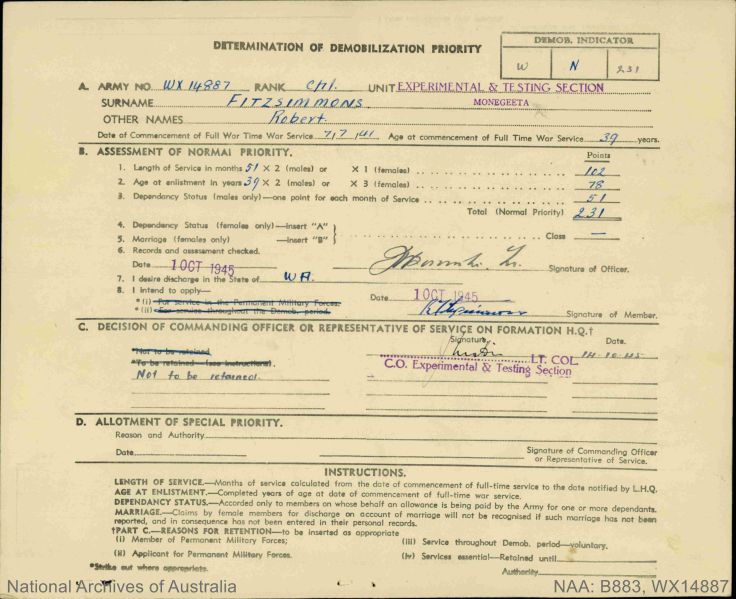 DETERMINATION OF DEMOBILIZATION PRIORITY
DEMOB. INDICATOR
W N 231
A. ARMY NO. WX14887 RANK Cpl. UNIT EXPERIMENTAL & TESTING SECTION
SURNAME FITZSIMMONS MONEGEETA
OTHER NAMES Robert.
Date of Commencement of Full War Time War Service 7/7/41 Age at commencement of Full Time War Service 39 years.
B. ASSESSMENT OF NORMAL PRIORITY. Points
1. Length of Service in months 51 × 2 (males) or × 1 (females) 102
2. Age at enlistment in years 39 × 2 (males) or × 3 (females) 78
3. Dependency Status (males only)—one point for each month of Service 51
Total (Normal Priority) 231
4. Dependency Status (females only)—Insert "A"
5. Marriage (females only) —Insert "B" Class —
6. Records and assessment checked.
Date 1 OCT 1945 Signature of Officer.
7. I desire discharge in the State of WA.
8. I intend to apply— Date 1 OCT 1945
* (i) For service in the Permanent Military Forces.
* (ii) For service throughout the Demob. period. Signature of Member.
C. DECISION OF COMMANDING OFFICER OR REPRESENTATIVE OF SERVICE ON FORMATION H.Q.†
Signature. Date.
*Not to be retained
*To be retained (see instructions). LT. COL. 14.10.45
Not to be retained. C.O. Experimental & Testing Section
D. ALLOTMENT OF SPECIAL PRIORITY.
Reason and Authority
Date Signature of Commanding Officer
or Representative of Service.
INSTRUCTIONS.
LENGTH OF SERVICE.—Months of service calculated from the date of commencement of full-time service to the date notified by L.H.Q.
AGE AT ENLISTMENT.—Completed years of age at date of commencement of full-time war service.
DEPENDENCY STATUS.—Accorded only to members on whose behalf an allowance is being paid by the Army for one or more dependants.
MARRIAGE.—Claims by female members for discharge on account of marriage will not be recognised if such marriage has not been
reported, and in consequence has not been entered in their personal records.
†PART C.—REASONS FOR RETENTION—to be inserted as appropriate
(i) Member of Permanent Military Forces; (iii) Service throughout Demob. period—voluntary.
(ii) Applicant for Permanent Military Forces. (iv) Services essential—Retained until
*Strike out where appropriate. Authority
National Archives of Australia NAA: B883, WX14887